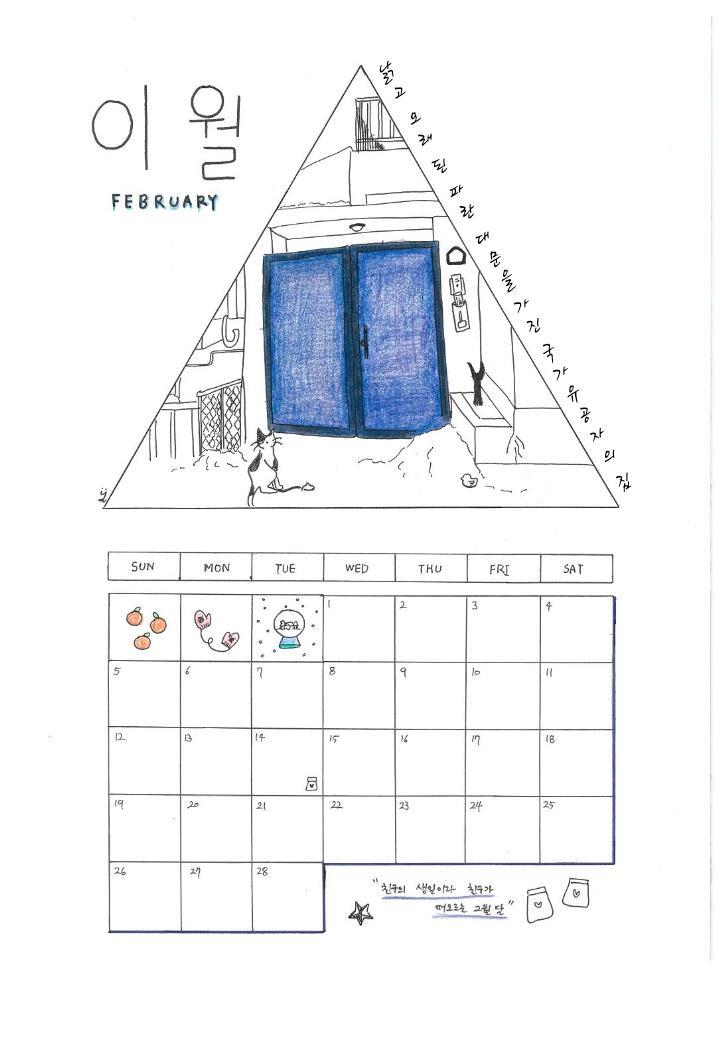 이월
FEBRUARY
낡고 오래된 파란 대문을 가진 국가유공자의 집
SUN MON TUE WED THU FRI SAT
1 2 3 4
5 6 7 8 9 10 11
12 13 14 15 16 17 18
19 20 21 22 23 24 25
26 27 28
"친구의 생일이라 친구가
떠오르는 2월 달"